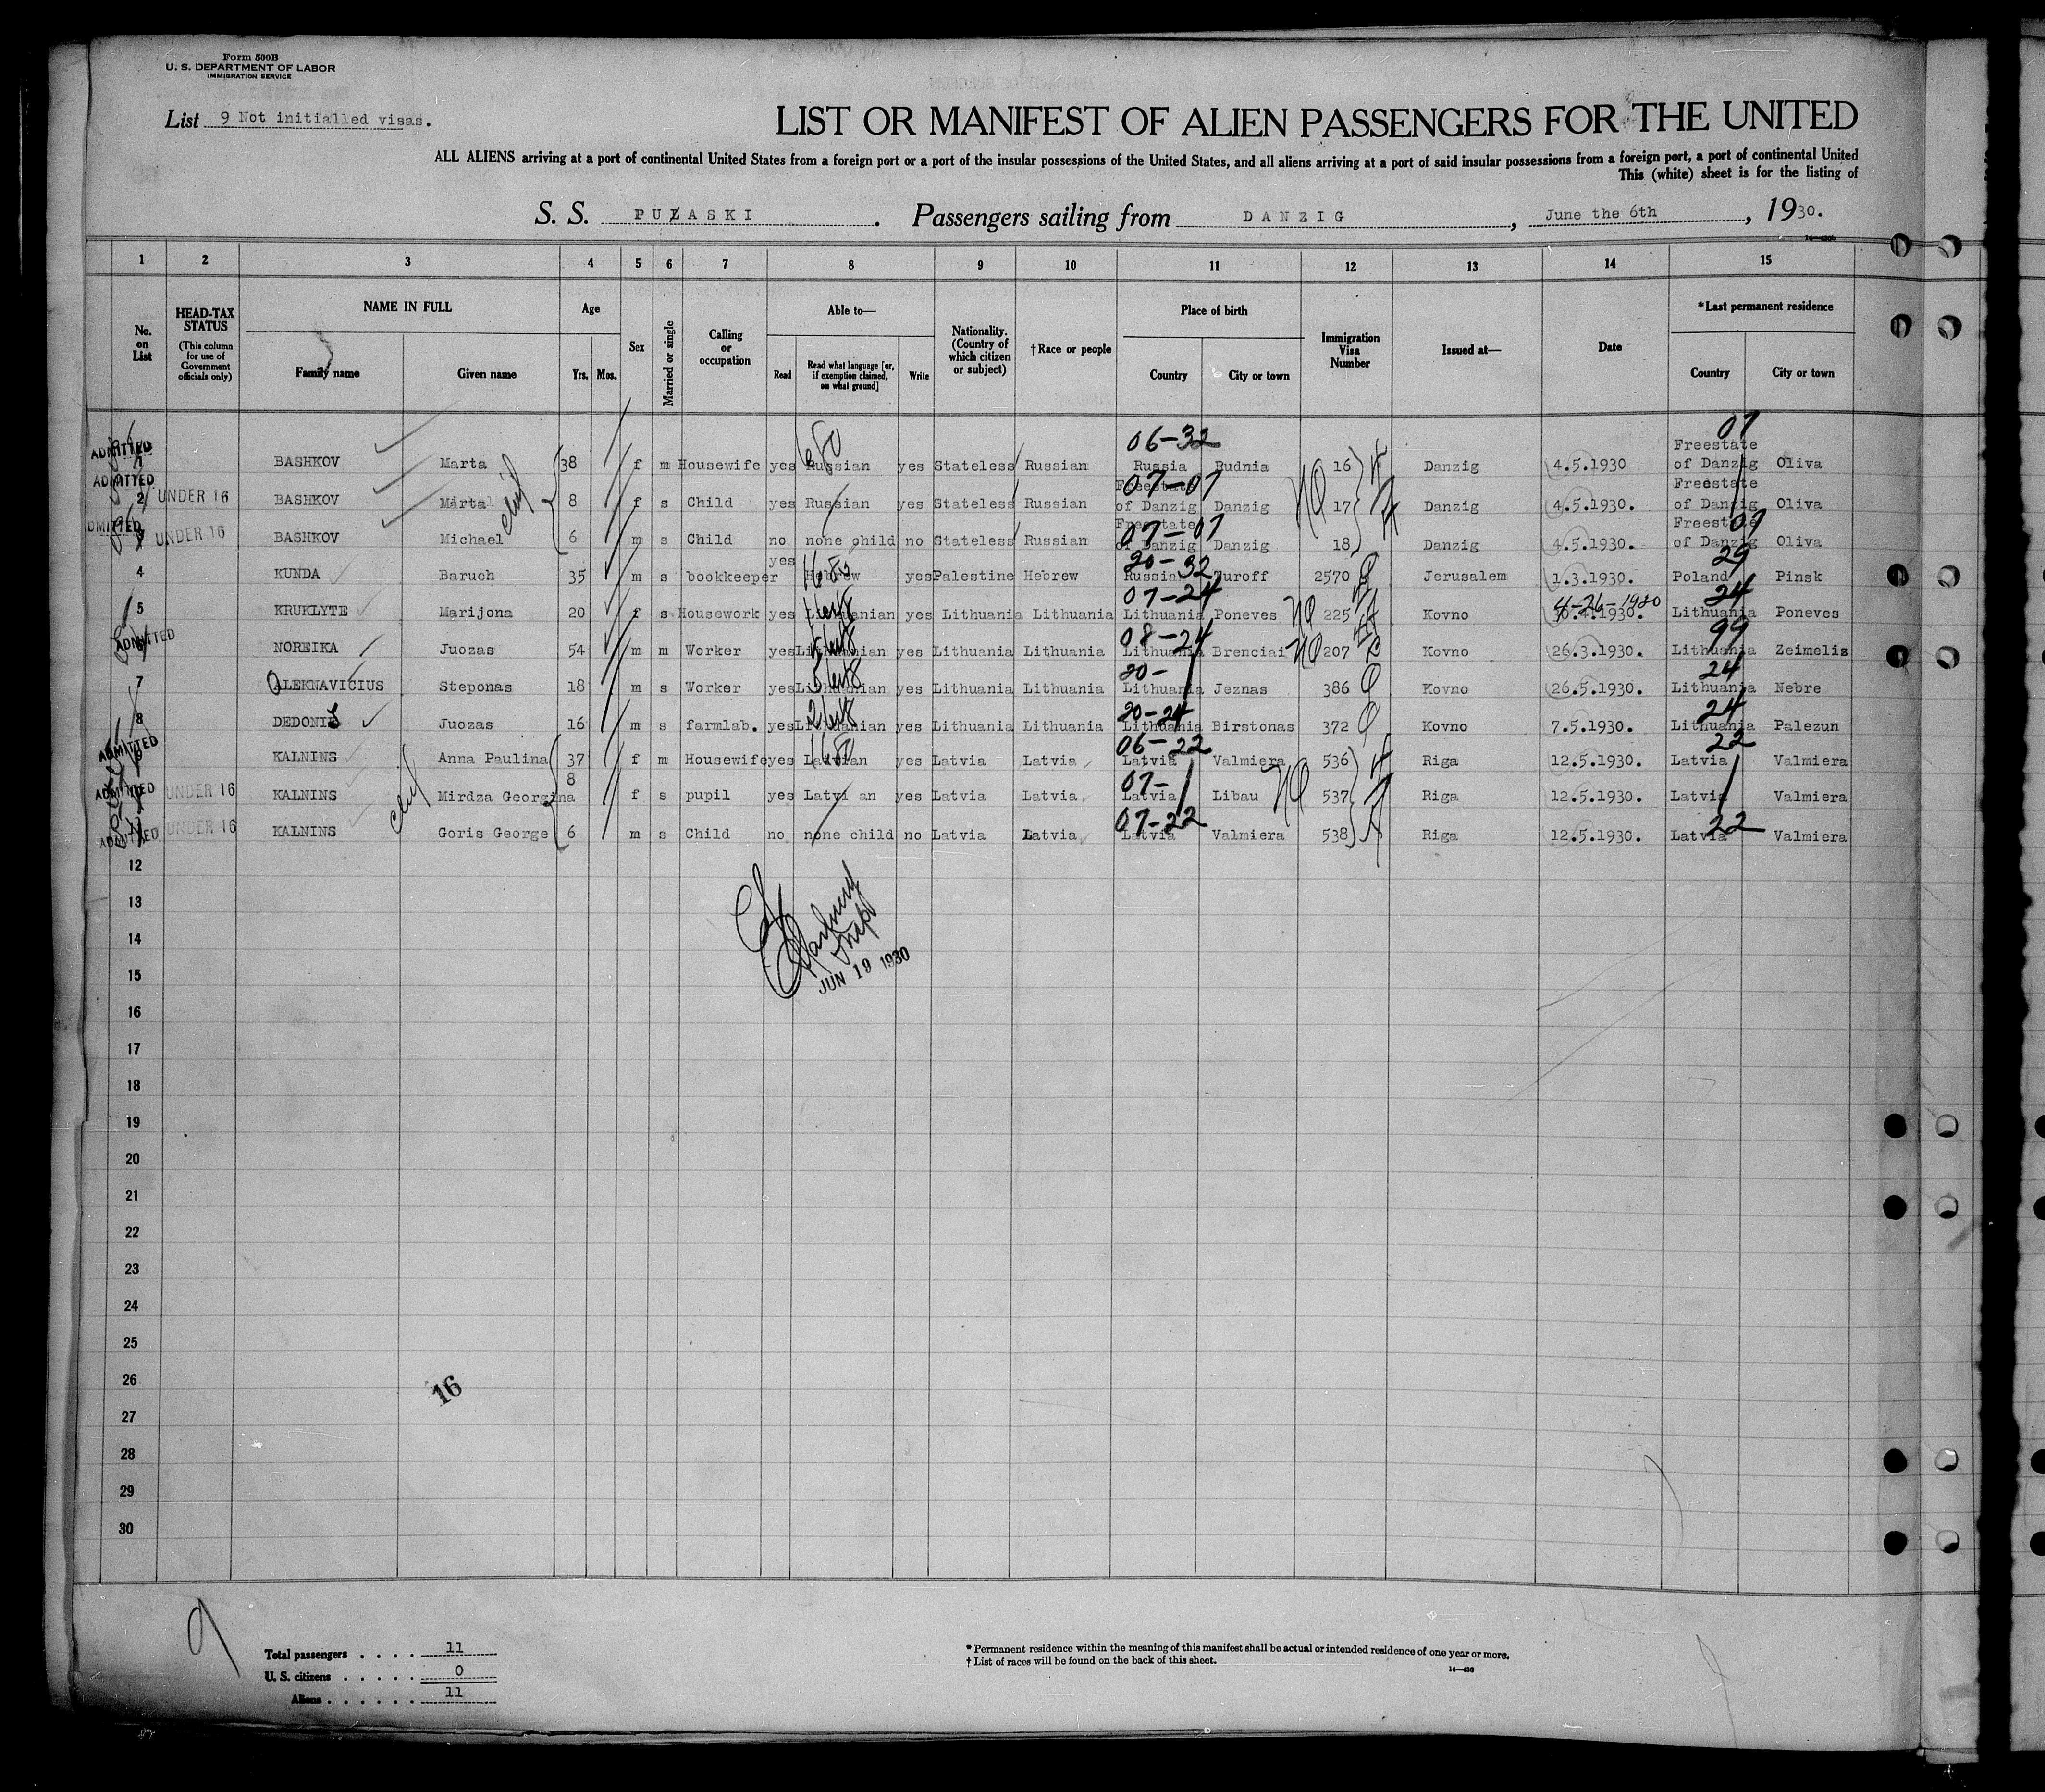 Form 500B
U. S. DEPARTMENT OF LABOR
IMMIGRATION SERVICE
List 9 Not initialled visas.
LIST OR MANIFEST OF ALIEN PASSENGERS FOR THE UNITED
ALL ALIENS arriving at a port of continental United States from a foreign port or a port of the insular possessions of the United States, and all aliens arriving at a port of said insular possessions from a foreign port, a port of continental United
This (white) sheet is for the listing of
S. S. PUŁASKI. Passengers sailing from DANZIG, June the 6th, 1930.
1 2 3 4 5 6 7 8 9 10 11 12 13 14 15
No. on List
HEAD-TAX STATUS
(This column for use of Government officials only)
NAME IN FULL
Family name Given name
Age
Yrs. Mos.
Sex
Married or single
Calling or occupation
Able to—
Read
Read what language [or, if exemption claimed, on what ground]
Write
Nationality. (Country of which citizen or subject)
†Race or people
Place of birth
Country City or town
Immigration Visa Number
Issued at—
Date
*Last permanent residence
Country City or town
ADMITTED 1 BASHKOV Marta 38 f m Housewife yes Russian yes Stateless Russian 06-32 Russia Rudnia 16 Danzig 4.5.1930 07 Freestate of Danzig Oliva
ADMITTED 2 UNDER 16 BASHKOV Marta 8 f s Child yes Russian yes Stateless Russian 07-07 Freestate of Danzig Danzig 17 Danzig 4.5.1930. Freestate of Danzig Oliva
ADMITTED 3 UNDER 16 BASHKOV Michael 6 m s Child no none child no Stateless Russian 07-07 Freestate of Danzig Danzig 18 Danzig 4.5.1930. 07 Freestate of Danzig Oliva
4 KUNDA Baruch 35 m s bookkeeper yes Hebrew yes Palestine Hebrew 20-32 Russia Turoff 2570 Jerusalem 1.3.1930. 29 Poland Pinsk
5 KRUKLYTE Marijona 20 f s Housework yes Lithuanian yes Lithuania Lithuania 07-24 Lithuania Poneves NQ 225 Kovno 4-26-1930 .4.1930. 24 Lithuania Poneves
ADMITTED 6 NOREIKA Juozas 54 m m Worker yes Lithuanian yes Lithuania Lithuania 08-24 Lithuania Brenciai NQ 207 Kovno 26.3.1930. 99 Lithuania Zeimelis
7 ALEKNAVICIUS Steponas 18 m s Worker yes Lithuanian yes Lithuania Lithuania 20- Lithuania Jeznas 386 Q Kovno 26.5.1930. 24 Lithuania Nebre
8 DEDONIS Juozas 16 m s farmlab. yes Lithuanian yes Lithuania Lithuania 20-24 Lithuania Birstonas 372 Q Kovno 7.5.1930. 24 Lithuania Palezun
ADMITTED 9 KALNINS Anna Paulina 37 f m Housewife yes Latvian yes Latvia Latvia 06-22 Latvia Valmiera 536 Riga 12.5.1930. 22 Latvia Valmiera
ADMITTED UNDER 16 KALNINS Mirdza Georgina 8 f s pupil yes Latvi an yes Latvia Latvia 07- Latvia Libau NQ 537 Riga 12.5.1930. Latvia Valmiera
ADMITTED UNDER 16 KALNINS Goris George 6 m s Child no none child no Latvia Latvia 07-22 Latvia Valmiera 538 Riga 12.5.1930. 22 Latvia Valmiera
12
13
14
JUN 19 1930
15
16
17
18
19
20
21
22
23
24
25
26
16
27
28
29
30
9
Total passengers . . . . 11
U. S. citizens . . . . . 0
Aliens . . . . . . 11
* Permanent residence within the meaning of this manifest shall be actual or intended residence of one year or more.
† List of races will be found on the back of this sheet.
14—430